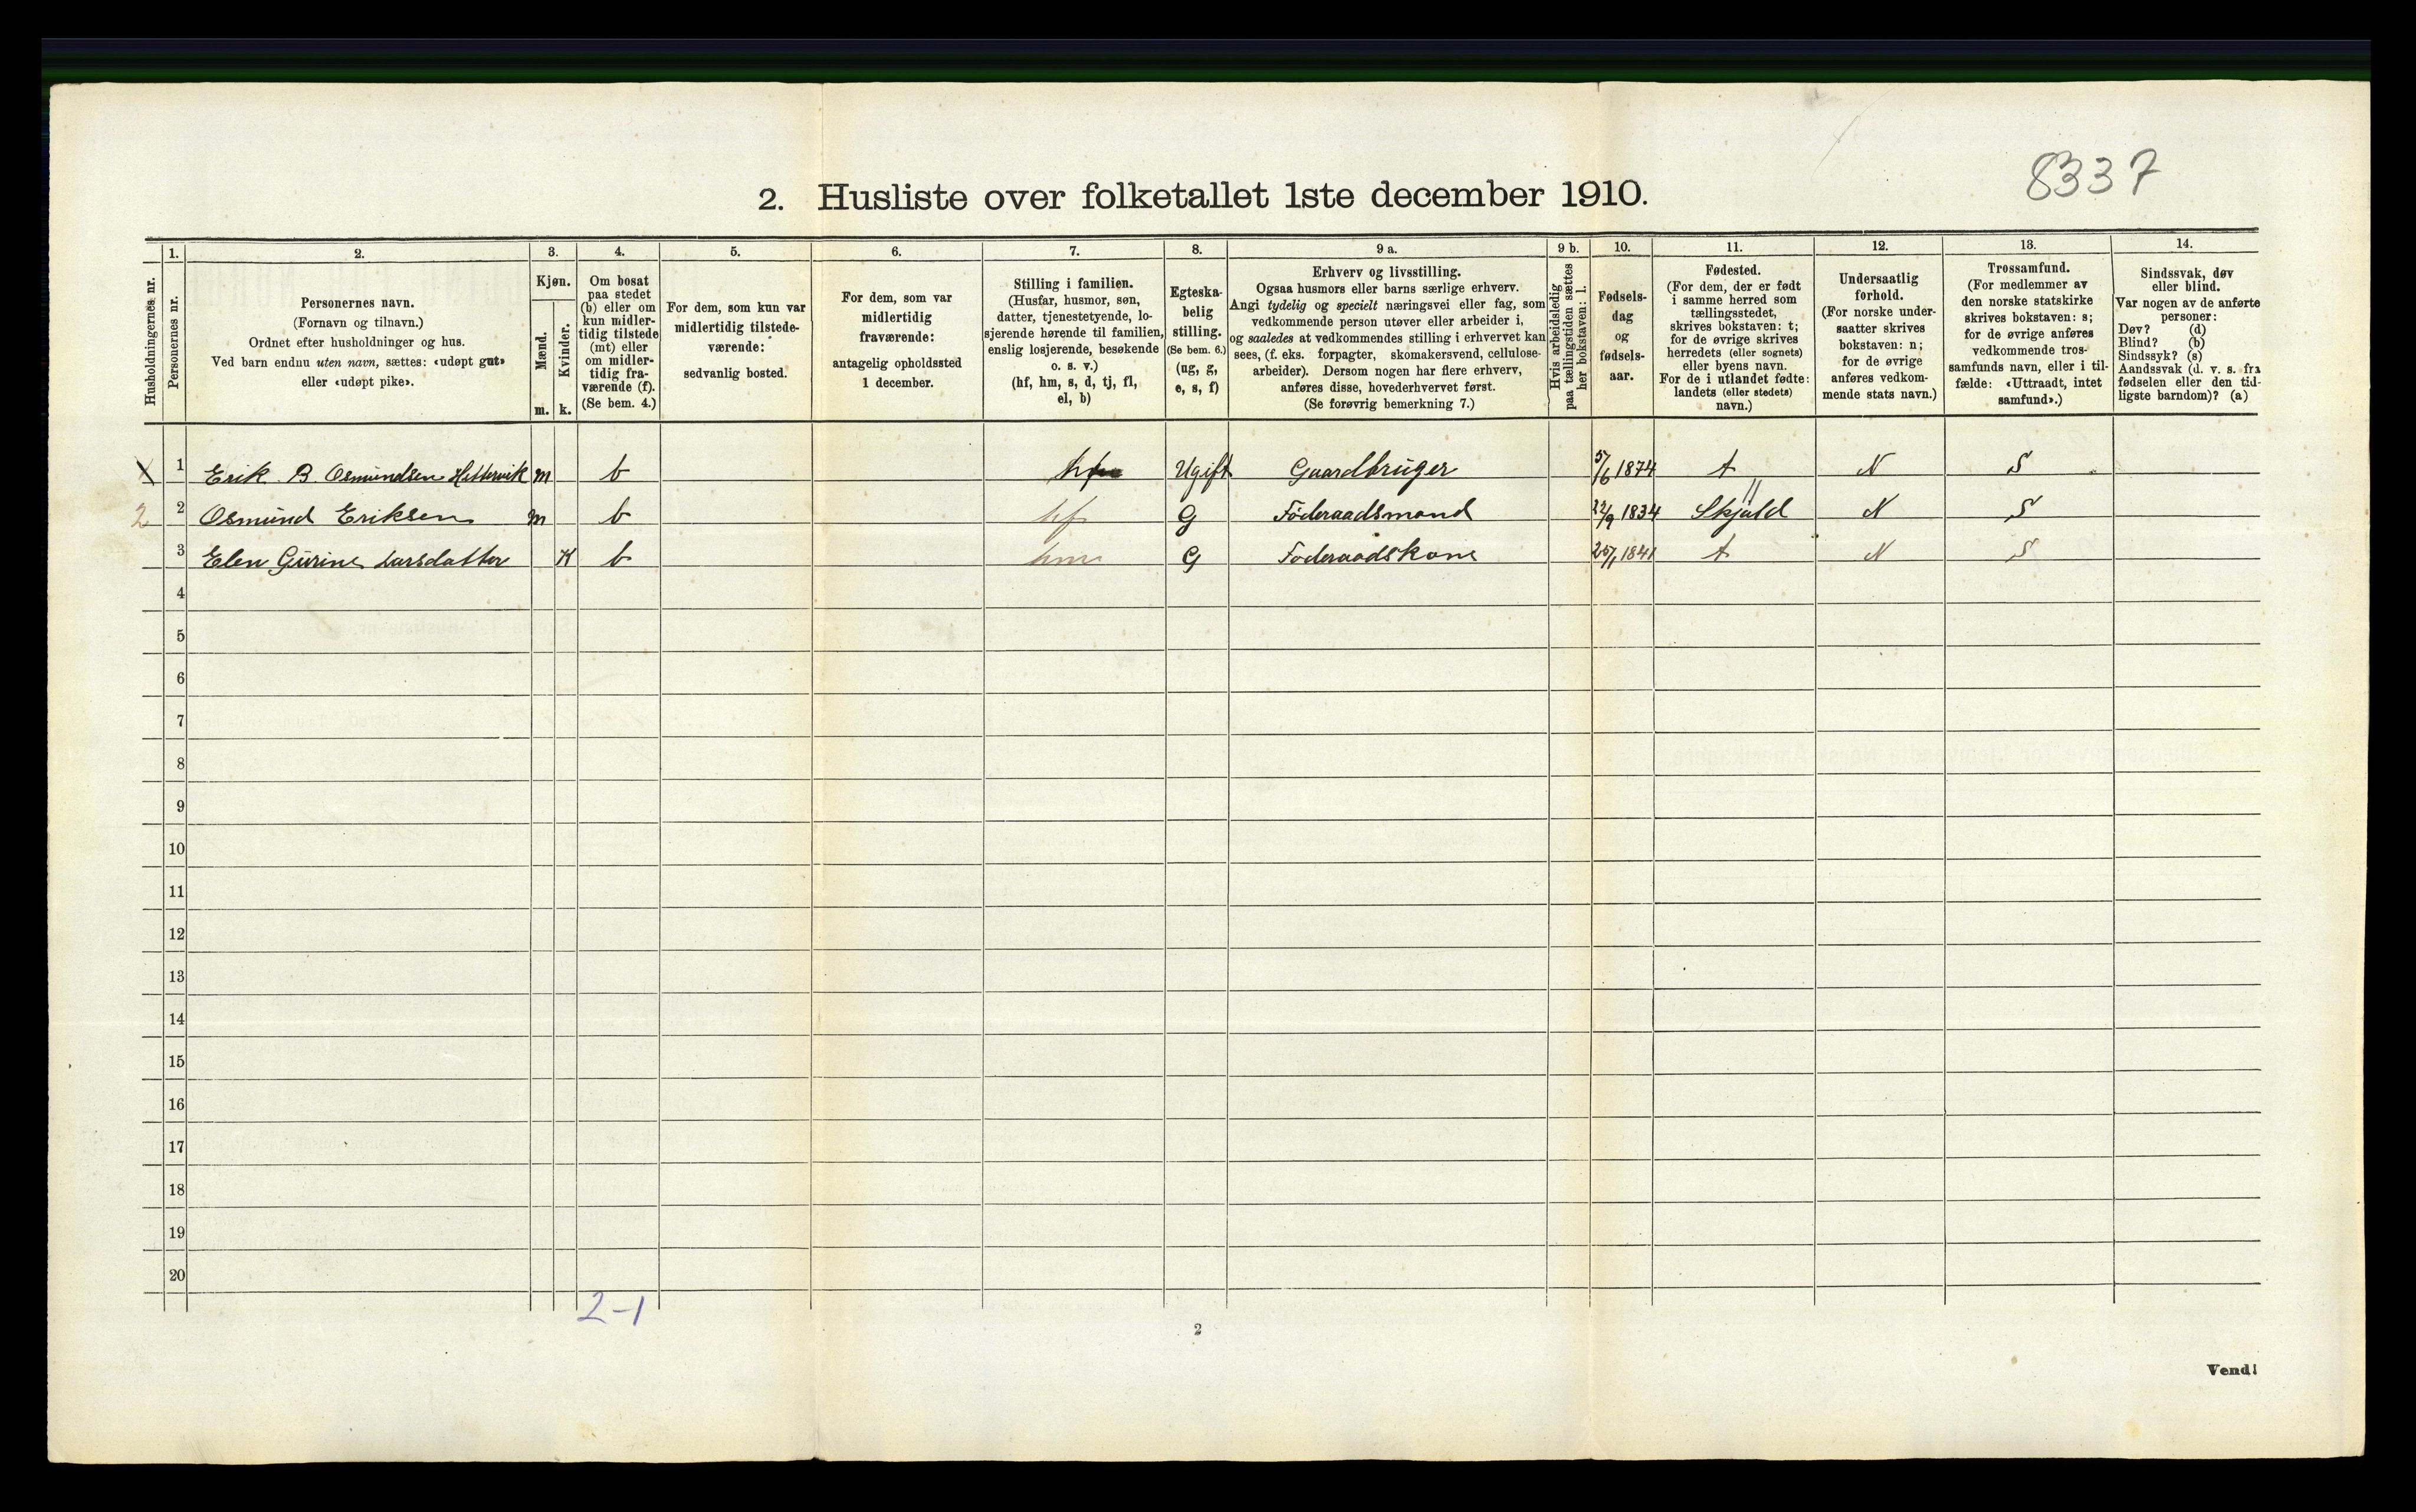 8337
2. Husliste over folketallet 1ste december 1910.
Husholdningernes nr.
1.
Personernes nr.
2.
Personernes navn.
(Fornavn og tilnavn.)
Ordnet efter husholdninger og hus.
Ved barn endnu uten navn, sættes: «udøpt gut»
eller «udøpt pike».
3.
Kjøn.
Mænd.
Kvinder.
m. k.
4.
Om bosat
paa stedet
(b) eller om
kun midler-
tidig tilstede
(mt) eller
om midler-
tidig fra-
værende (f).
(Se bem. 4.)
5.
For dem, som kun var
midlertidig tilstede-
værende:
sedvanlig bosted.
6.
For dem, som var
midlertidig
fraværende:
antagelig opholdssted
1 december.
7.
Stilling i familien.
(Husfar, husmor, søn,
datter, tjenestetyende, lo-
sjerende hørende til familien,
enslig losjerende, besøkende
o. s. v.)
(hf, hm, s, d, tj, fl,
el, b)
8.
Egteska-
belig
stilling.
(Se bem. 6.)
(ug, g,
e, s, f)
9 a.
Erhverv og livsstilling.
Ogsaa husmors eller barns særlige erhverv.
Angi tydelig og specielt næringsvei eller fag, som
vedkommende person utøver eller arbeider i,
og saaledes at vedkommendes stilling i erhvervet kan
sees, (f. eks. forpagter, skomakersvend, cellulose-
arbeider). Dersom nogen har flere erhverv,
anføres disse, hovederhvervet først.
(Se forøvrig bemerkning 7.)
9 b.
Hvis arbeidsledig
paa tællingstiden sættes
her bokstaven: l.
10.
Fødsels-
dag
og
fødsels-
aar.
11.
Fødested.
(For dem, der er født
i samme herred som
tællingsstedet,
skrives bokstaven: t;
for de øvrige skrives
herredets (eller sognets)
eller byens navn.
For de i utlandet fødte:
landets (eller stedets)
navn.)
12.
Undersaatlig
forhold.
(For norske under-
saatter skrives
bokstaven: n;
for de øvrige
anføres vedkom-
mende stats navn.)
13.
Trossamfund.
(For medlemmer av
den norske statskirke
skrives bokstaven: s;
for de øvrige anføres
vedkommende tros-
samfunds navn, eller i til-
fælde: «Uttraadt, intet
samfund».)
14.
Sindssvak, døv
eller blind.
Var nogen av de anførte
personer:
Døv? (d)
Blind? (b)
Sindssyk? (s)
Aandssvak (d. v. s. fra
fødselen eller den tid-
ligste barndom)? (a)
1 Erik B. Osmundsen Hettervik m b hf Ugift Gaardbruger 5/6 1874 t N S
2 2 Osmund Eriksen m b hf G Föderaadsmand 22/9 1834 Skjold N S
3 Elen Gurine Larsdatter K b hm G Föderaadskone 25/1 1841 t N S
4
5
6
7
8
9
10
11
12
13
14
15
16
17
18
19
20
2-1
2
Vend!